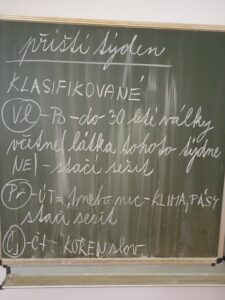 příští týden
KLASIFIKOVANÉ
Vl - Po - do 30 leté války
včetně (látka tohoto týdne
NE) - stačí sešit
Př - ÚT = 1 nebo nic - KLIMA, PÁSY
stačí sešit
Čj - ČT - KOŘEN slov